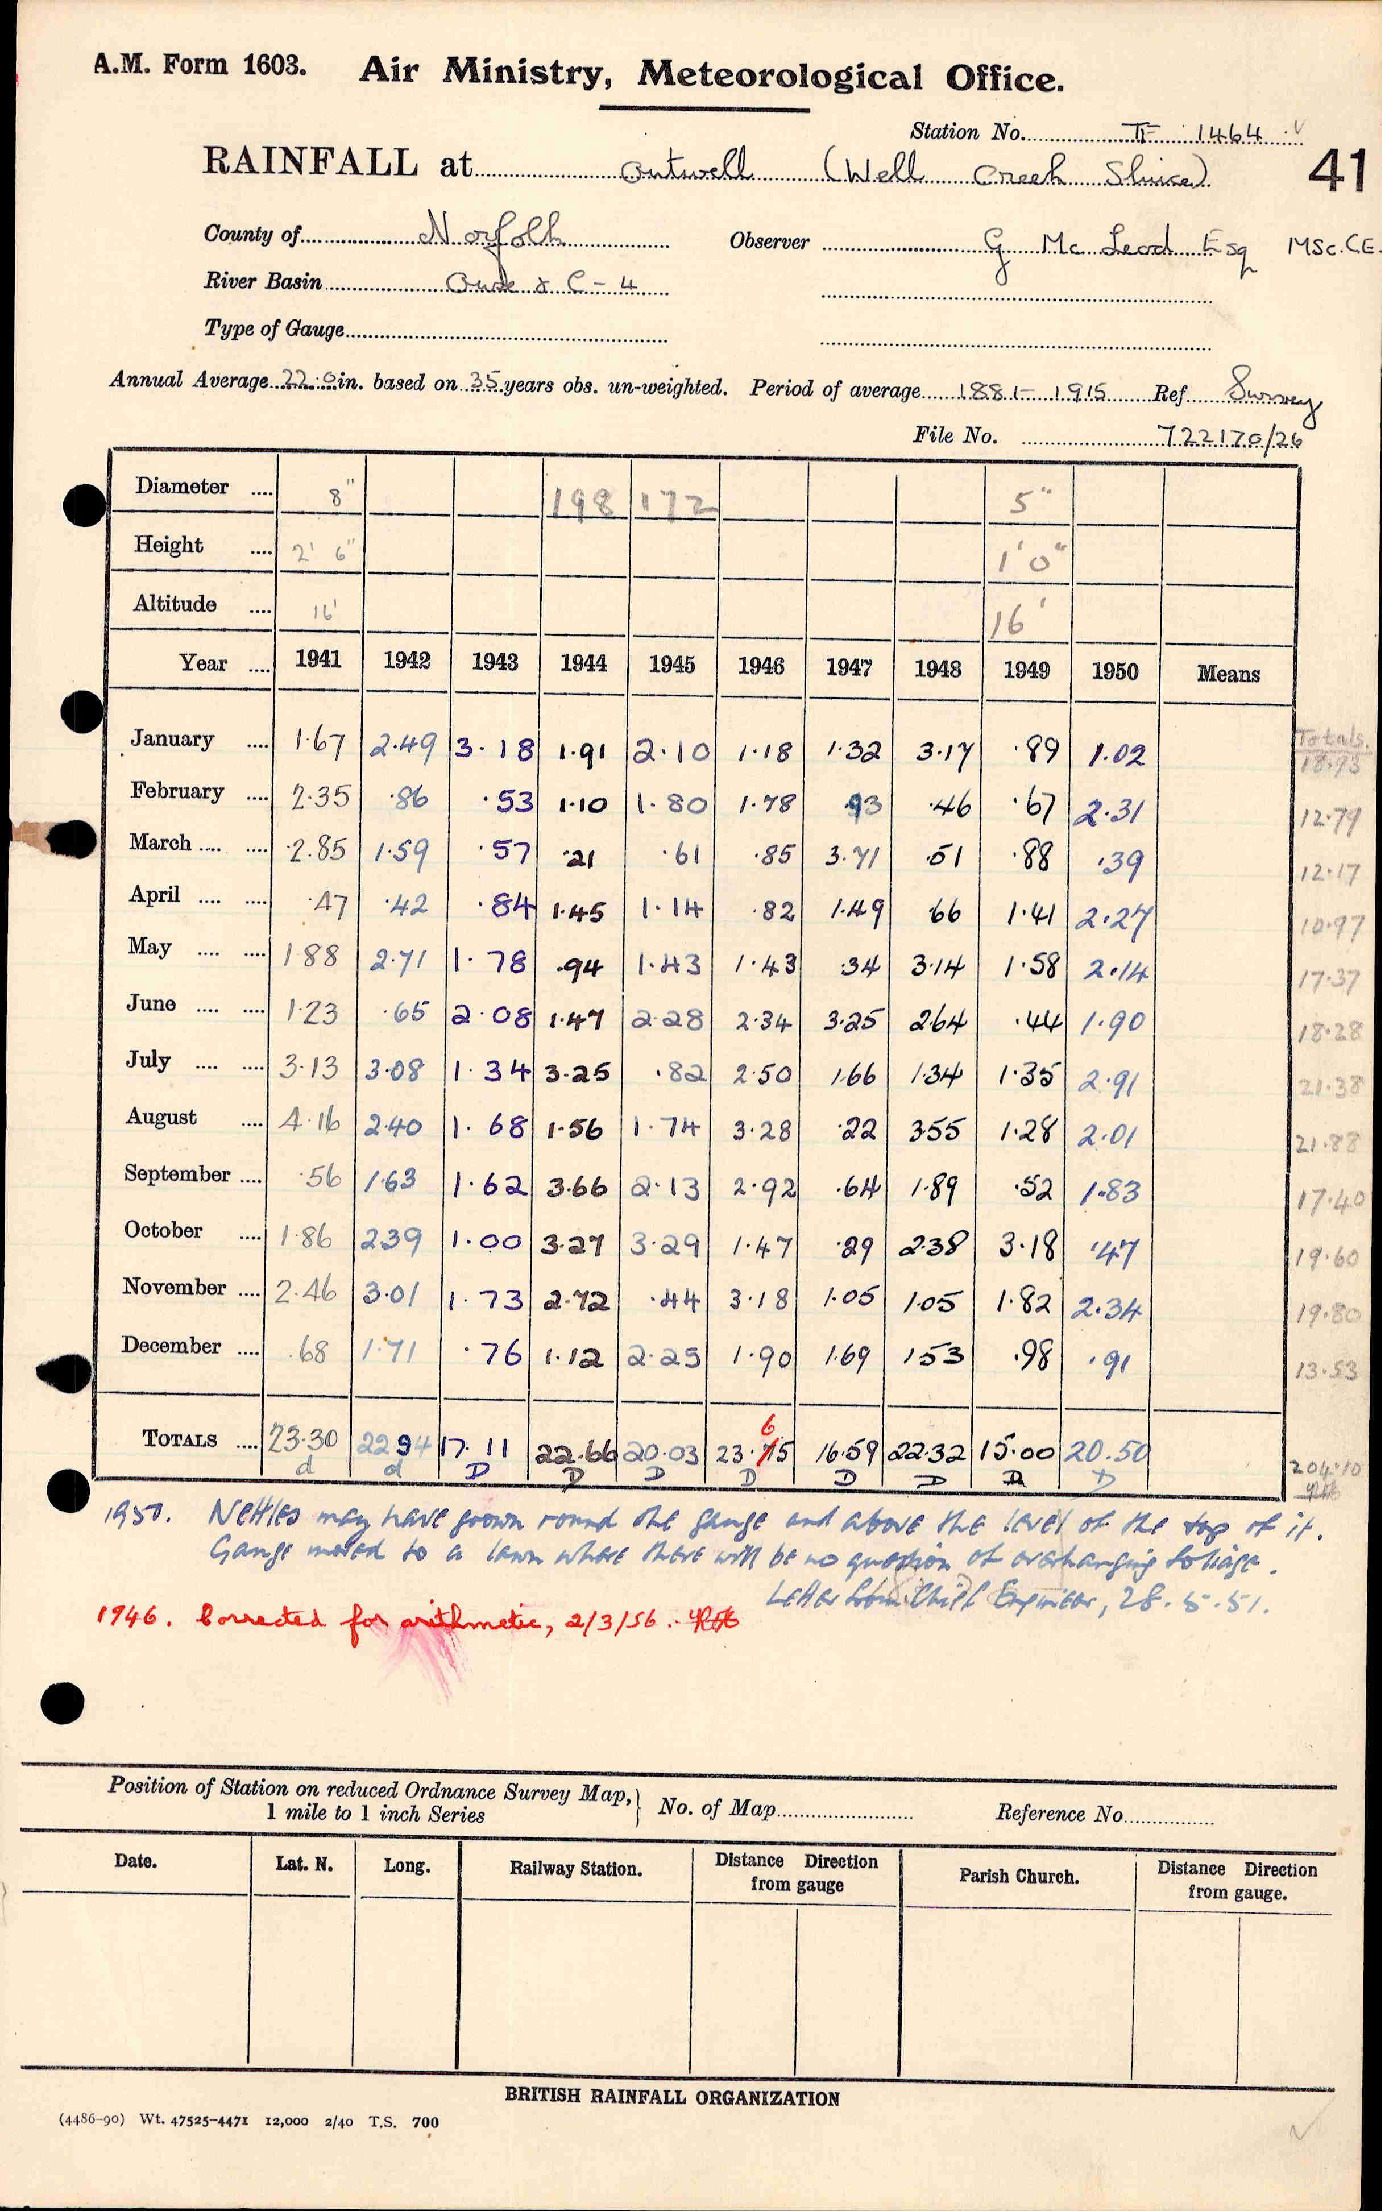 A.M. Form 1603. Air Ministry, Meteorological Office.
Station No. TF 1464 √
RAINFALL at Outwell (Well Creek Sluice) 41
County of Norfolk Observer G Mc Leod Esq MSc.CE.
River Basin Ouse & C-4
Type of Gauge
Annual Average 22.0 in. based on 35 years obs. un-weighted. Period of average 1881-1915 Ref Survey
File No. 722170/26
Diameter .... 8" 198 172 5"
Height .... 2' 6" 1'0"
Altitude .... 16' 16'
Year .... 1941 1942 1943 1944 1945 1946 1947 1948 1949 1950 Means
Totals.
January .... 1.67 2.49 3.18 1.91 2.10 1.18 1.32 3.17 .89 1.02 18.93
February .... 2.35 .86 .53 1.10 1.80 1.78 .93 .46 .67 2.31 12.79
March .... .... 2.85 1.59 .57 .21 .61 .85 3.71 .51 .88 .39 12.17
April .... .... .47 .42 .84 1.45 1.14 .82 1.49 66 1.41 2.27 10.97
May .... .... 1.88 2.71 1.78 .94 1.43 1.43 .34 3.14 1.58 2.14 17.37
June .... .... 1.23 .65 2.08 1.47 2.28 2.34 3.25 264 .44 1.90 18.28
July .... .... 3.13 3.08 1.34 3.25 .82 2.50 1.66 1.34 1.35 2.91 21.38
August .... 4.16 2.40 1.68 1.56 1.74 3.28 .22 355 1.28 2.01 21.88
September .... .56 1.63 1.62 3.66 2.13 2.92 .64 1.89 .52 1.83 17.40
October .... 1.86 239 1.00 3.27 3.29 1.47 .29 2.38 3.18 .47 19.60
November .... 2.46 3.01 1.73 2.72 .44 3.18 1.05 1.05 1.82 2.34 19.80
December .... .68 1.71 .76 1.12 2.25 1.90 1.69 1.53 .98 .91 13.53
6
TOTALS .... 23.30 22.94 17.11 22.66 20.03 23.75 16.59 22.32 15.00 20.50 204.10
d d D D D D D D D D
1950. Nettles may have grown round the gauge and above the level of the top of it.
Gauge moved to a lawn where there will be no question of overhanging foliage.
Letter from Chief Engineer, 28.5.51.
1946. Corrected for arithmetic, 2/3/56.
Position of Station on reduced Ordnance Survey Map, } No. of Map Reference No.
1 mile to 1 inch Series
Date. Lat. N. Long. Railway Station. Distance Direction from gauge Parish Church. Distance Direction from gauge.
BRITISH RAINFALL ORGANIZATION
(4486-90) Wt. 47525-4471 12,000 2/40 T.S. 700